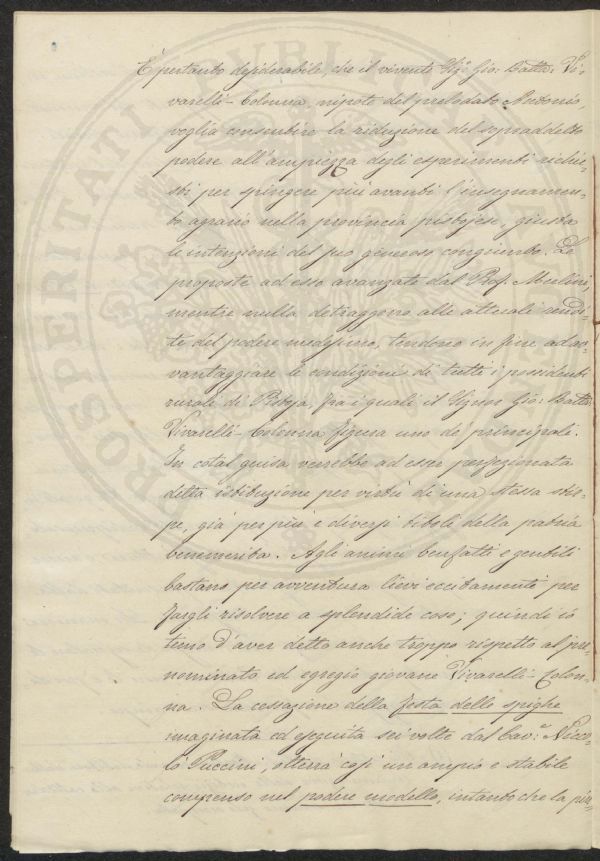 È pertanto desiderabile, che il vivente Sig.r Gio: Batta: Vi-
varelli-Colonna, nipote del prelodato Antonio,
voglia consentire la riduzione del sopraddetto
podere all'ampiezza degli esperimenti richie-
sti per spingere più avanti l'insegnamen-
to agrario nella provincia pistojese, giusta
le intenzioni del suo generoso congiunto. Le
proposte ad esso avanzate dal Prof. Merlini,
mentre nulla detraggono alle attuali rendi-
te del podere medesimo, tendono in fine ad av-
vantaggiare le condizioni di tutti i possidenti
rurali di Pistoja, fra i quali il Signor Gio: Batta:
Vivarelli-Colonna figura uno de' principali.
In cotal guisa verrebbe ad esser perfezionata
detta istituzione per virtù di una stessa stir-
pe, già per più e diversi titoli della patria
benemerita. Agli animi benfatti e gentili
bastano per avventura lievi eccitamenti per
fargli risolvere a splendide cose; quindi io
temo d'aver detto anche troppo rispetto al pre-
nominato ed egregio giovane Vivarelli-Colon-
na. La cessazione della festa delle spighe
imaginata ed eseguita sei volte dal Cav.e Nicco-
lò Puccini, otterrà così un ampio e stabile
compenso nel podere modello, intanto che la più-
PROSPERITATI PVBLICAE